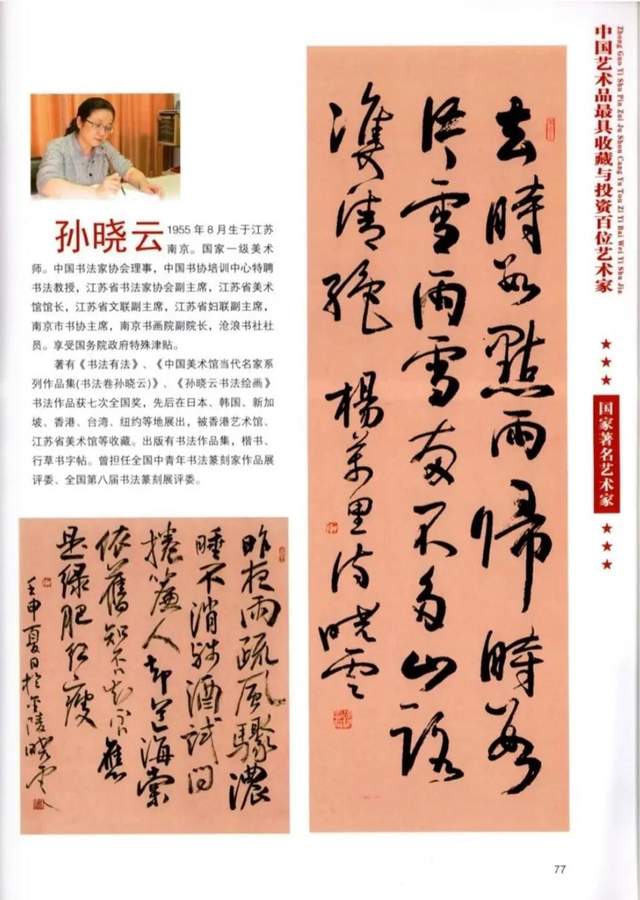 Zhong Guo Yi Shu Pin Zui Ju Shou Cang Yu Tou Zi Yi Bai Wei Yi Shu Jia
中国艺术品最具收藏与投资百位艺术家
国家著名艺术家
孙晓云 1955年8月生于江苏
南京。国家一级美术
师。中国书法家协会理事，中国书协培训中心特聘
书法教授，江苏省书法家协会副主席，江苏省美术
馆馆长，江苏省文联副主席，江苏省妇联副主席，
南京市书协主席，南京书画院副院长，沧浪书社社
员。享受国务院政府特殊津贴。
著有《书法有法》、《中国美术馆当代名家系
列作品集(书法卷孙晓云)》、《孙晓云书法绘画》
书法作品获七次全国奖，先后在日本、韩国、新加
坡、香港、台湾、纽约等地展出，被香港艺术馆、
江苏省美术馆等收藏。出版有书法作品集，楷书、
行草书字帖。曾担任全国中青年书法篆刻家作品展
评委、全国第八届书法篆刻展评委。
去時數點雨歸時數
片雪雨雪兩不多山路
雙清絕 楊萬里詩 曉雲
昨夜雨疏風驟濃
睡不消殘酒試問
捲簾人卻道海棠
依舊知否知否應
是綠肥紅瘦
壬申夏日於金陵曉雲
77